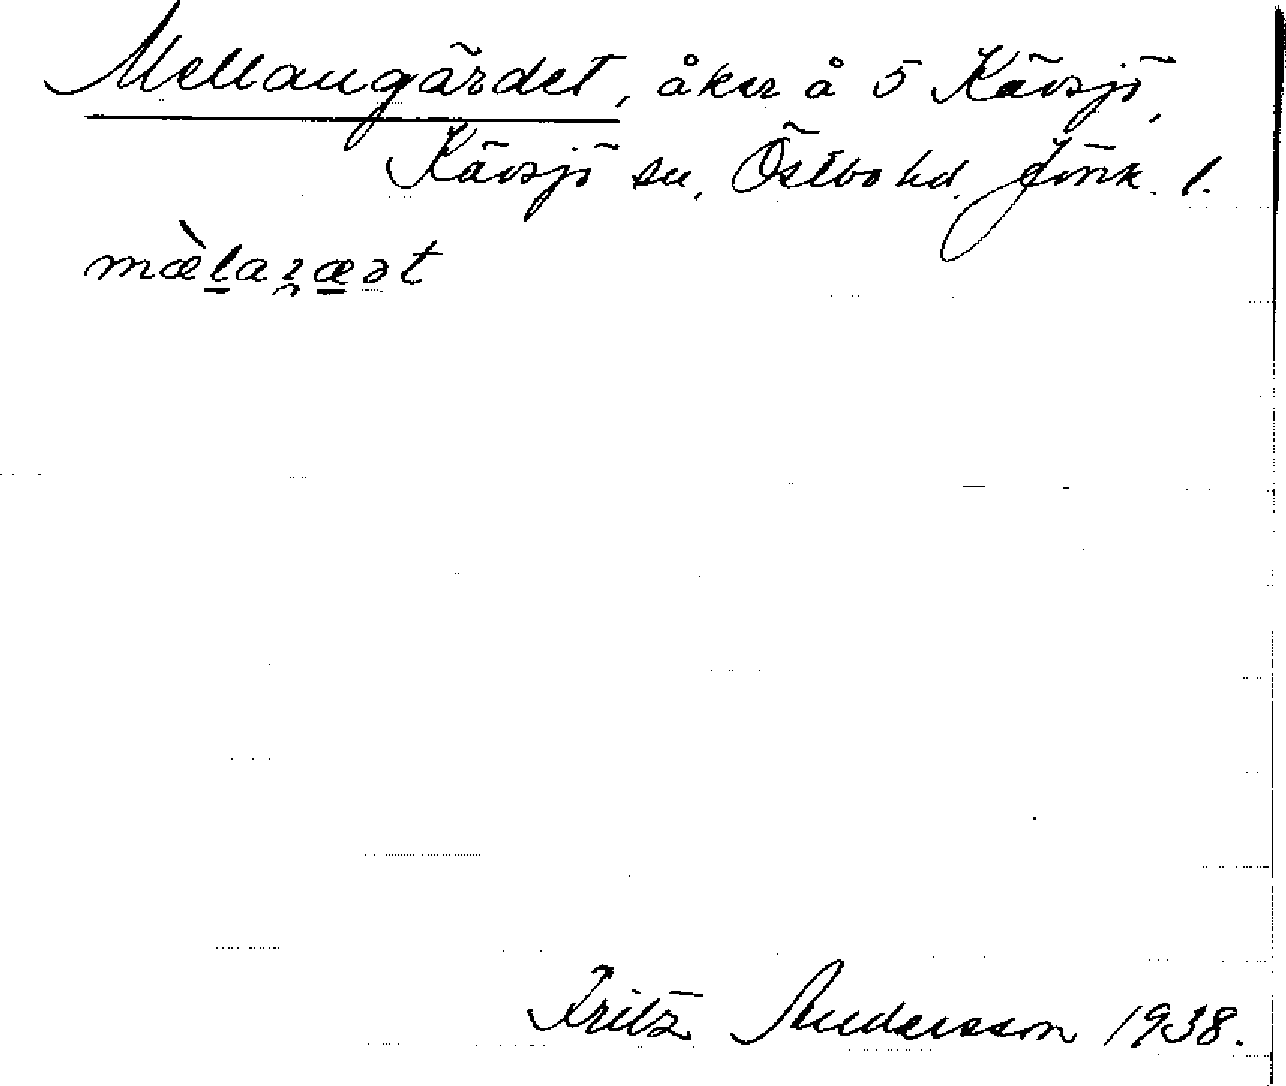 Mellangärdet, åker å 5 Kävsjö,
Kävsjö sn, Östbo hd. Jönk. l.
mæ̀laʒæət
Fritz Andersson 1938.